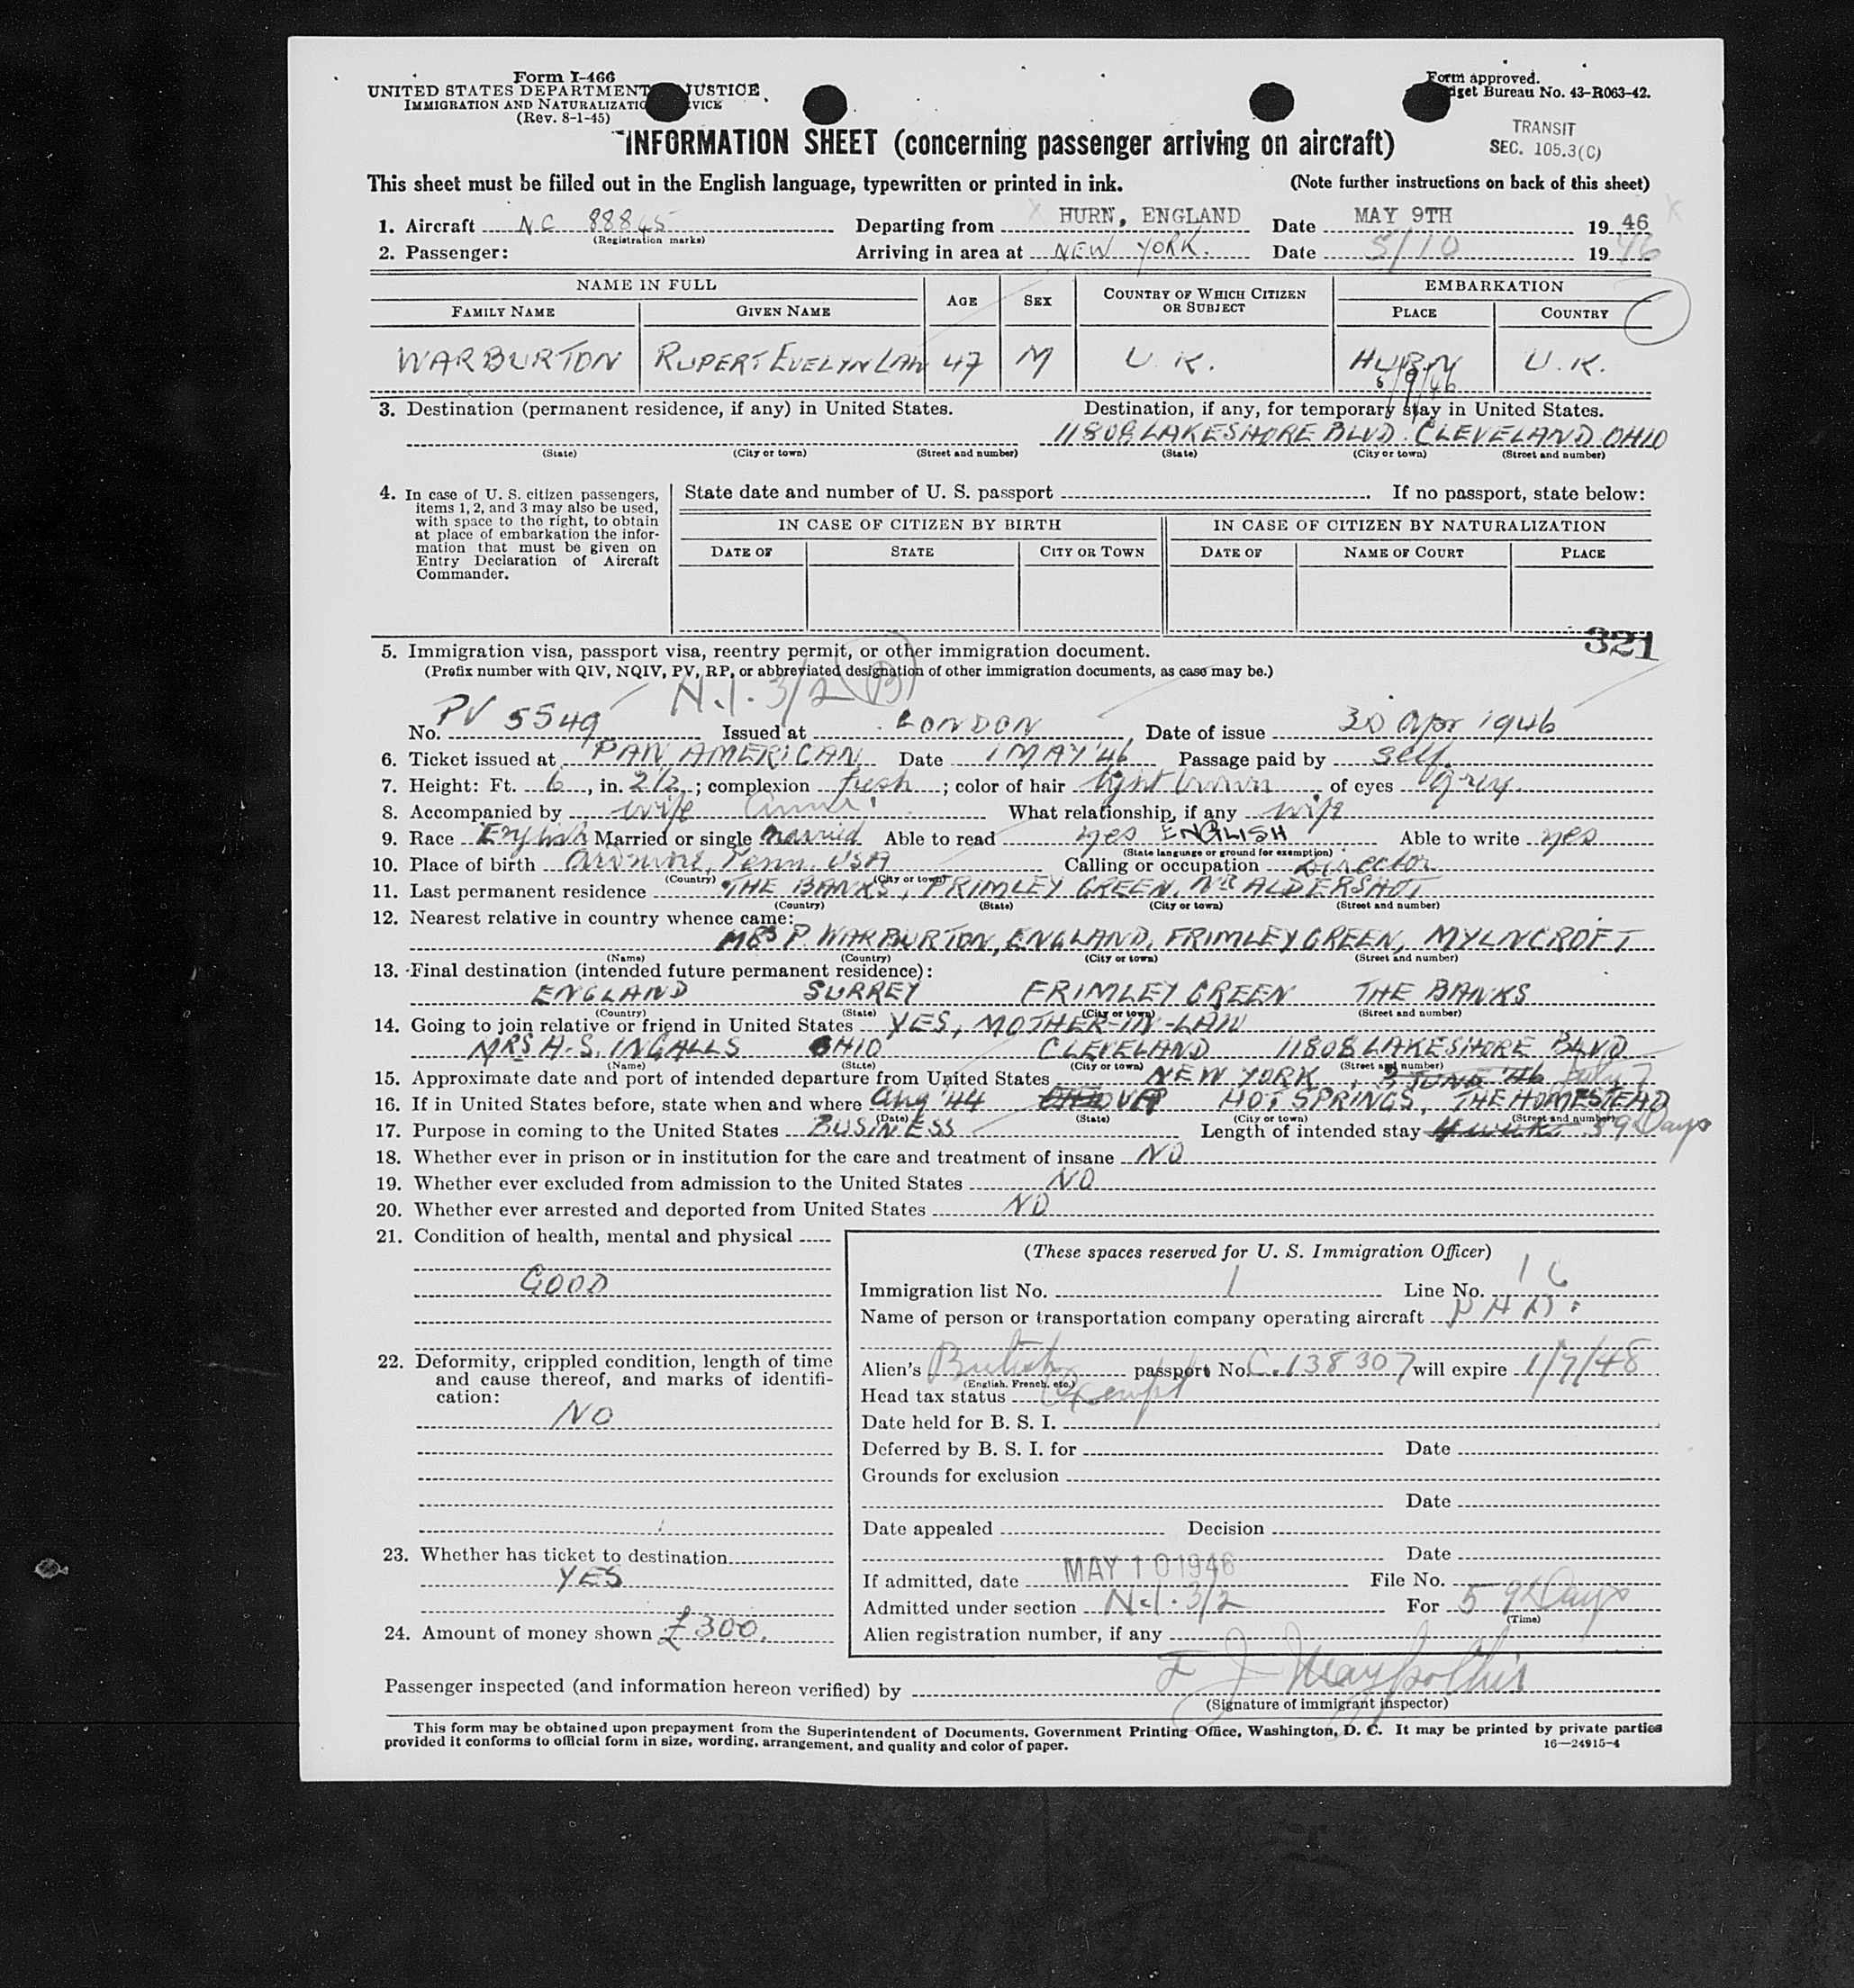 Form I-466
UNITED STATES DEPARTMENT JUSTICE
IMMIGRATION AND NATURALIZATIO VICE
(Rev. 8-1-45)
Form approved.
dget Bureau No. 43-R063-42.
TRANSIT
SEC. 105.3(C)
INFORMATION SHEET (concerning passenger arriving on aircraft)
This sheet must be filled out in the English language, typewritten or printed in ink. (Note further instructions on back of this sheet)
1. Aircraft NC 88865 Departing from HURN, ENGLAND Date MAY 9TH 19 46
(Registration marks)
2. Passenger: Arriving in area at NEW YORK. Date 5/10 19 46
NAME IN FULL AGE SEX COUNTRY OF WHICH CITIZEN OR SUBJECT EMBARKATION
FAMILY NAME GIVEN NAME PLACE COUNTRY
WARBURTON RUPERT EVELYN LAW 47 M U.K. HURN U.K.
5/9/46
3. Destination (permanent residence, if any) in United States. Destination, if any, for temporary stay in United States.
11808 LAKESHORE BLVD. CLEVELAND OHIO
(State) (City or town) (Street and number) (State) (City or town) (Street and number)
4. In case of U. S. citizen passengers, items 1, 2, and 3 may also be used, with space to the right, to obtain at place of embarkation the information that must be given on Entry Declaration of Aircraft Commander.
State date and number of U. S. passport . If no passport, state below:
IN CASE OF CITIZEN BY BIRTH IN CASE OF CITIZEN BY NATURALIZATION
DATE OF STATE CITY OR TOWN DATE OF NAME OF COURT PLACE
321
5. Immigration visa, passport visa, reentry permit, or other immigration document.
(Prefix number with QIV, NQIV, PV, RP, or abbreviated designation of other immigration documents, as case may be.)
N.I. 3/2 (B)
No. PV 5549 Issued at LONDON, Date of issue 30 Apr 1946
6. Ticket issued at PAN AMERICAN Date 1 MAY '46 Passage paid by self.
7. Height: Ft. 6, in. 2 1/2; complexion fresh; color of hair light brown of eyes grey.
8. Accompanied by wife What relationship, if any wife
9. Race English Married or single married Able to read yes ENGLISH Able to write yes
(State language or ground for exemption)
10. Place of birth Ardmore, Penn. USA Calling or occupation Director
(Country) (City or town)
11. Last permanent residence THE BANKS, FRIMLEY GREEN, NR ALDERSHOT
(Country) (State) (City or town) (Street and number)
12. Nearest relative in country whence came:
MRS P. WARBURTON, ENGLAND, FRIMLEY GREEN, MYLNCROFT
(Name) (Country) (City or town) (Street and number)
13. Final destination (intended future permanent residence):
ENGLAND SURREY FRIMLEY GREEN THE BANKS
(Country) (State) (City or town) (Street and number)
14. Going to join relative or friend in United States YES, MOTHER-IN-LAW
MRS A.S. INGALLS OHIO CLEVELAND 11808 LAKESHORE BLVD
(Name) (State) (City or town) (Street and number)
15. Approximate date and port of intended departure from United States NEW YORK, 3 JUNE '46 July 7
16. If in United States before, state when and where Aug '44 VA HOT SPRINGS, THE HOMESTEAD
(Date) (State) (City or town) (Street and number)
17. Purpose in coming to the United States BUSINESS Length of intended stay 4 weeks 59 Days
18. Whether ever in prison or in institution for the care and treatment of insane NO
19. Whether ever excluded from admission to the United States NO
20. Whether ever arrested and deported from United States NO
21. Condition of health, mental and physical
GOOD
22. Deformity, crippled condition, length of time and cause thereof, and marks of identification:
NO
23. Whether has ticket to destination
YES
24. Amount of money shown £300.
(These spaces reserved for U. S. Immigration Officer)
Immigration list No. 1 Line No. 16
Name of person or transportation company operating aircraft
Alien's British passport No. C.138307 will expire 1/7/48
(English, French, etc.)
Head tax status Exempt
Date held for B. S. I.
Deferred by B. S. I. for Date
Grounds for exclusion
Date
Date appealed Decision
Date
If admitted, date MAY 10 1946 File No.
Admitted under section N.I. 3/2 For 59 Days
(Time)
Alien registration number, if any
Passenger inspected (and information hereon verified) by
(Signature of immigrant inspector)
This form may be obtained upon prepayment from the Superintendent of Documents, Government Printing Office, Washington, D. C. It may be printed by private parties
provided it conforms to official form in size, wording, arrangement, and quality and color of paper. 16—24915-4